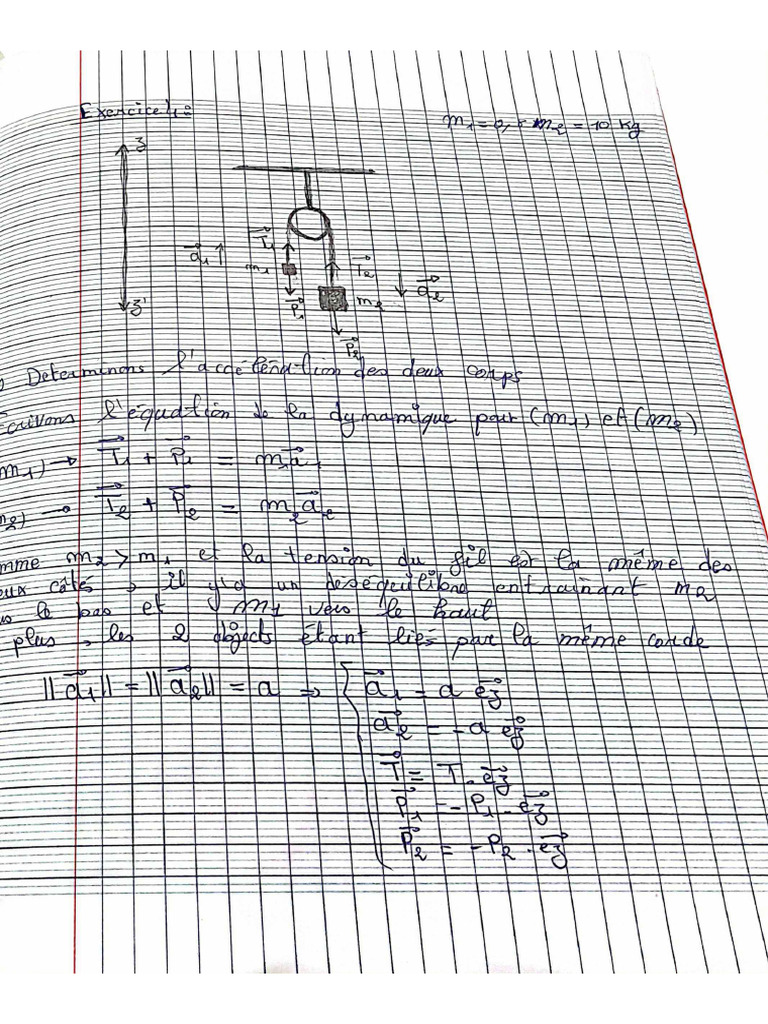 Exercice 1:
m1 = 0, m2 = 10 kg
z
T1
a1
m1
T2
a2
P1
m2
z'
P2
) Determinons l'accélération des deux corps
crivons l'équation de la dynamique pour (m1) et (m2)
m1) → T1 + P1 = m1a1
m2) → T2 + P2 = m2a2
mme m2 > m1 et la tension du fil est la même des
eux côtés, il y'a un desequilibre entrainant m2
s le bas et m1 vers le haut
plus, les 2 objects étant liés par la même corde
||a1|| = ||a2|| = a ⇒ { a1 = a ez
a2 = -a ez
T = T . ez
P1 = -P1 . ez
P2 = -P2 . ez